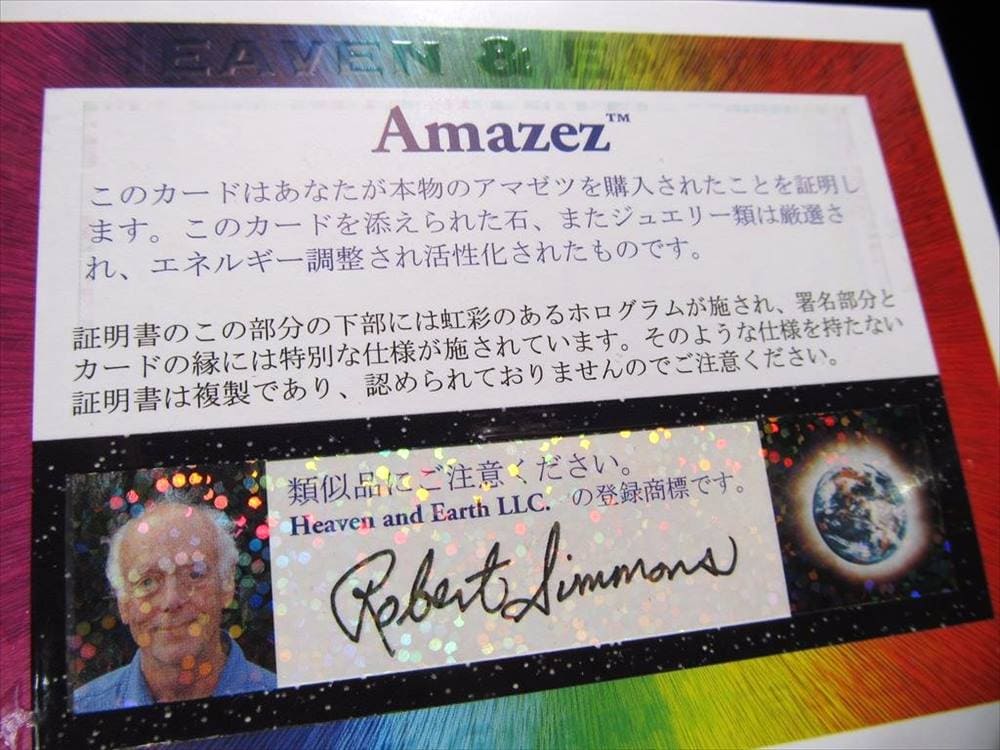 HEAVEN & E
Amazez™
このカードはあなたが本物のアマゼツを購入されたことを証明し
ます。このカードを添えられた石、またジュエリー類は厳選さ
れ、エネルギー調整され活性化されたものです。
証明書のこの部分の下部には虹彩のあるホログラムが施され、署名部分と
カードの縁には特別な仕様が施されています。そのような仕様を持たない
証明書は複製であり、認められておりませんのでご注意ください。
類似品にご注意ください。
Heaven and Earth LLC. の登録商標です。
Robert Simmons